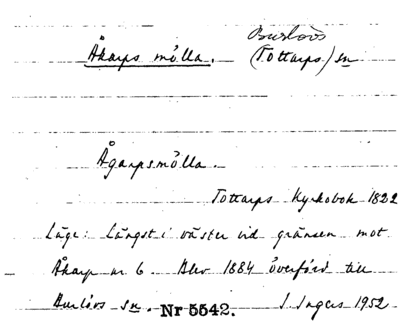 Burlövs
Åkarps mölla. (Tottarps) sn
Ågarpsmölla.
Tottarps Kyrkobok 1822
Läge: Längst i väster vid gränsen mot
Åkarp nr 6. Blev 1884 överförd till
Burlövs sn. Nr 5542. I. Ingers 1952